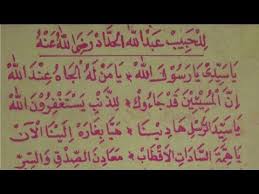 للحبيب عبد الله الحداد رضي الله عنه
يا سيدي يا رسول الله * يا من له الجاه عند الله
ان المسيئين قد جاءوك * للذنب يستغفرون الله
يا سيد الرسل هادينا * هيا بغارة الينا الآن
يا همة السادات الاقطاب * معادن الصدق والسر